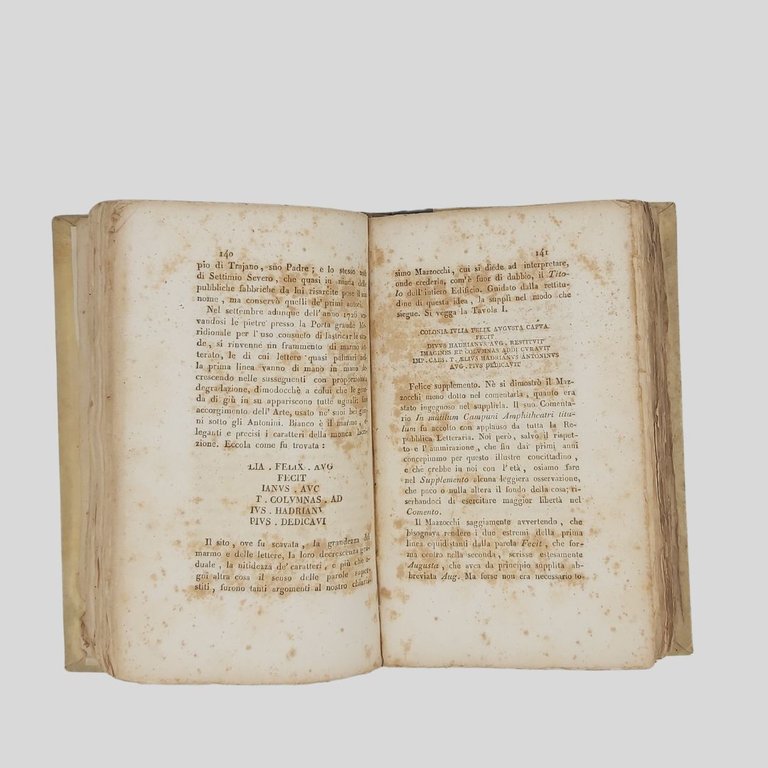 140
pio di Trajano, suo Padre; e lo stesso
di Settimio Severo, che quasi in
pubbliche fabbriche da lui risarcite pose il suo
nome, ma conservò quelli de' primi autori.
Nel settembre adunque dell'anno 1726
vandosi le pietre presso la Porta grande Me-
ridionale per l'uso consueto di lasticar le
de, si rinvenne un frammento di marmo
terato, le di cui lettere quasi palmari
la prima linea vanno di mano in mano
crescendo nelle susseguenti con proporzionata
degradazione, dimodocchè a colui che
da di giù in su appariscono tutte uguali;
accorgimento dell' Arte, usato ne' suoi
ni sotto gli Antonini. Bianco è il marmo,
leganti e precisi i caratteri della monca Iscri-
zione. Eccola come fu trovata:
LIA . FELIX . AVG
FECIT
IANVS . AVC
T . COLVMNAS . AD
IVS . HADRIANV
PIVS . DEDICAVI
Il sito, ove fu scavata, la grandezza del
marmo e delle lettere, la loro decrescenza gra-
duale, la nitidezza de' caratteri, e più che
gni altra cosa il senso delle parole
stiti, furono tanti argomenti al nostro
141
simo Mazzocchi, cui si diede ad interpretare,
onde crederla, com'è fuor di dubbio, il Tito-
lo dell'intiero Edificio. Guidato dalla rettitu-
dine di questa idea, la supplì nel modo che
siegue. Si vegga la Tavola I.
COLONIA IVLIA FELIX AVGVSTA CAPVA
FECIT
DIVVS HADRIANVS AVG. RESTITVIT
IMAGINES ET COLVMNAS ADDI CVRAVIT
IMP. CAES. T. AELIVS HADRIANVS ANTONINVS
AVG. PIVS DEDICAVIT
Felice supplemento. Nè si dimostrò il Maz-
zocchi meno dotto nel comentarla, quanto era
stato ingegnoso nel supplirla. Il suo Comenta-
rio In mutilum Campani Amphitheatri titu-
lum fu accolto con applauso da tutta la Re-
pubblica Letteraria. Noi però, salvo il rispet-
to e l'ammirazione, che fin dai primi anni
concepimmo per questo illustre concittadino,
e che crebbe in noi con l'età, osiamo fare
nel Supplemento alcuna leggiera osservazione,
che poco o nulla altera il fondo della cosa; ri-
serbandoci di esercitare maggior libertà nel
Comento.
Il Mazzocchi saggiamente avvertendo, che
bisognava rendere i due estremi della prima
linea equidistanti dalla parola Fecit, che for-
ma centro nella seconda, scrisse estesamente
Augusta, che avea da principio supplita ab-
breviata Aug. Ma forse non era necessario to-